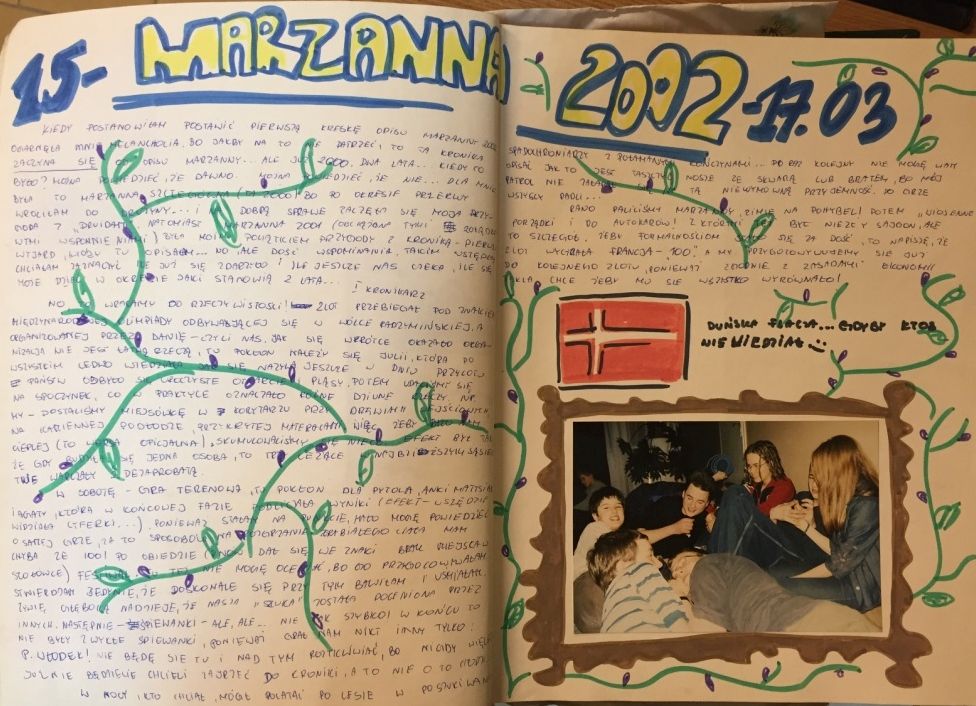 15- MARZANNA 2002 -17.03
KIEDY POSTANOWIŁAM POSTAWIĆ PIERWSZĄ KRESKĘ OPISU MARZANNY 2002,
OGARNĘŁA MNIE MELANCHOLIA, BO JAKBY NA TO NIE PATRZEĆ, TO TA KRONIKA
ZACZYNA SIĘ OD OPISU MARZANNY... ALE JUŻ 2000. DWA LATA... KIEDY TO
BYŁO? MOŻNA POWIEDZIEĆ, ŻE DAWNO. MOŻNA POWIEDZIEĆ, ŻE NIE... DLA MNIE
BYŁA TO MARZANNA SZCZEGÓLNA (DALEJ 2000!) BO PO OKRESIE PRZERWY
WRÓCIŁAM DO DRUŻYNY... I DOBRĄ SPRAWĘ ZACZĘŁA SIĘ MOJA PRZY-
GODA Z "DRUIDAMI". NATOMIAST MARZANNA 2001 (OBCIĄŻONA TYMI
WSPOMNIENIAMI) BYŁA MOIM POCZĄTKIEM PRZYGODY Z KRONIKĄ - PIERWSZY
WYJAZD, KTÓRY TU OPISAŁAM... NO ALE DOŚĆ WSPOMINANIA. TAKIM WSTĘPEM
CHCIAŁAM ZAZNACZYĆ ILE JUŻ SIĘ ZDARZYŁO I ILE JESZCZE NAS CZEKA, ILE SIĘ
MOŻE DZIAĆ W OKRESIE JAKI STANOWIĄ 2 LATA...
I KRONIKARZ
NO TO WRACAMY DO RZECZYWISTOŚCI! ZLOT PRZEBIEGAŁ POD ZNAKIEM
MIĘDZYNARODOWEJ OLIMPIADY ODBYWAJĄCEJ SIĘ W WÓLCE RADZYMIŃSKIEJ, A
ORGANIZOWANEJ PRZEZ DANIĘ - CZYLI NAS. JAK SIĘ WKRÓTCE OKAZAŁO ORGA-
NIZACJA NIE JEST ŁATWĄ RZECZĄ, TU POKŁON NALEŻY SIĘ JULII, KTÓRA PO
WSZYSTKIM LEDWO WIEDZIAŁA JAK SIĘ NAZYWA. JESZCZE W DNIU PRZYLOTU
PAŃSTW ODBYŁO SIĘ UROCZYSTE OTWARCIE I PLĄSY, POTEM UDALIŚMY SIĘ
NA SPOCZYNEK, CO W PRAKTYCE OZNACZAŁO RÓŻNE DZIWNE RZECZY. NP.
MY - DOSTALIŚMY MIEJSCÓWKĘ W KORYTARZU PRZY DRZWIACH WEJŚCIOWYCH
NA KAMIENNEJ PODŁODZE, PRZYKRYTEJ MATERACAMI, WIĘC ŻEBY BYŁO NAM
CIEPLEJ (TO WERSJA OFICJALNA), SKUMULOWALIŚMY SIĘ NIECO. EFEKT BYŁ TAKI
ŻE GDY BUDZIŁA SIĘ JEDNA OSOBA, TO TRZY LEŻĄCE W NAJBLIŻSZYM SĄSIEDZ-
TWIE WARCZAŁY Z DEZAPROBATĄ.
W SOBOTĘ - GRA TERENOWA, TU POKŁON DLA PYZOLA, ANKI MATYSIAK
I AGATY, KTÓRA W KOŃCOWEJ FAZIE PODLICZAŁA WYNIKI (EFEKT - WSZĘDZIE
WIDZIAŁA CYFERKI...). PONIEWAŻ STAŁAM NA PUNKCIE, MAŁO MOGĘ POWIEDZIEĆ
O SAMEJ GRZE, ZA TO SPOSOBÓW NA ROZGRZANIE ZZIĘBIAŁEGO CIAŁA MAM
CHYBA ZE 100! PO OBIEDZIE (ZNÓW DAŁ SIĘ WE ZNAKI BRAK MIEJSCA W
STOŁÓWCE) FESTIWAL TEŻ NIE MOGĘ OCENIĆ, BO GO PRZYGOTOWYWAŁAM.
STWIERDZAM JEDYNIE, ŻE DOSKONALE SIĘ PRZY TYM BAWIŁAM I UŚMIAŁAM.
ŻYWIĘ GŁĘBOKĄ NADZIEJĘ, ŻE NASZA "SZTUKA" ZOSTAŁA DOCENIONA PRZEZ
INNYCH. NASTĘPNIE - ŚPIEWANKI - ALE, ALE... NIE TAK SZYBKO! W KOŃCU TO
NIE BYŁY ZWYKŁE ŚPIEWANKI, PONIEWAŻ GRAŁ NAM NIKT INNY TYLKO
P. WŁODEK! NIE BĘDĘ SIĘ TU I NAD TYM ROZTKLIWIAĆ, BO NIGDY WIĘCEJ
JUŻ NIE BĘDZIECIE CHCIELI ZAJRZEĆ DO KRONIKI, A TO NIE O TO CHODZI.
W NOCY, KTO CHCIAŁ, MÓGŁ POLATAĆ PO LESIE W POSZUKIWANIU
SPADOCHRONIARZY Z POŁAMANYMI KOŃCZYNAMI... PO RAZ KOLEJNY NIE MOGĘ WAM
OPISAĆ JAK TO JEST TASZCZYĆ NOSZE ZE SKWARĄ LUB BRATEM, BO MÓJ
PATROL NIE ZAŁAPAŁ SIĘ NA TĄ NIEWYMOWNĄ PRZYJEMNOŚĆ. PO GRZE
WSZYSCY PADLI...
RANO PALILIŚMY MARZANNY, ZIMIE NA POHYBEL! POTEM "WIOSENNE"
PORZĄDKI I DO AUTOKARÓW! Z KTÓRYMI BYŁ NIEZŁY SAJGON, ALE
TO SZCZEGÓŁ. ŻEBY FORMALNOŚCIOM STAŁO SIĘ ZA DOŚĆ, TO NAPISZĘ, ŻE
ZLOT WYGRAŁA FRANCJA - "100", A MY PRZYGOTOWUJEMY SIĘ JUŻ
DO KOLEJNEGO ZLOTU, PONIEWAŻ ZGODNIE Z ZASADAMI EKONOMII
CHCE ŻEBY MU SIĘ WSZYSTKO WYRÓWNAŁO!
DUŃSKA FLAGA... GDYBY KTOŚ
NIE WIEDZIAŁ